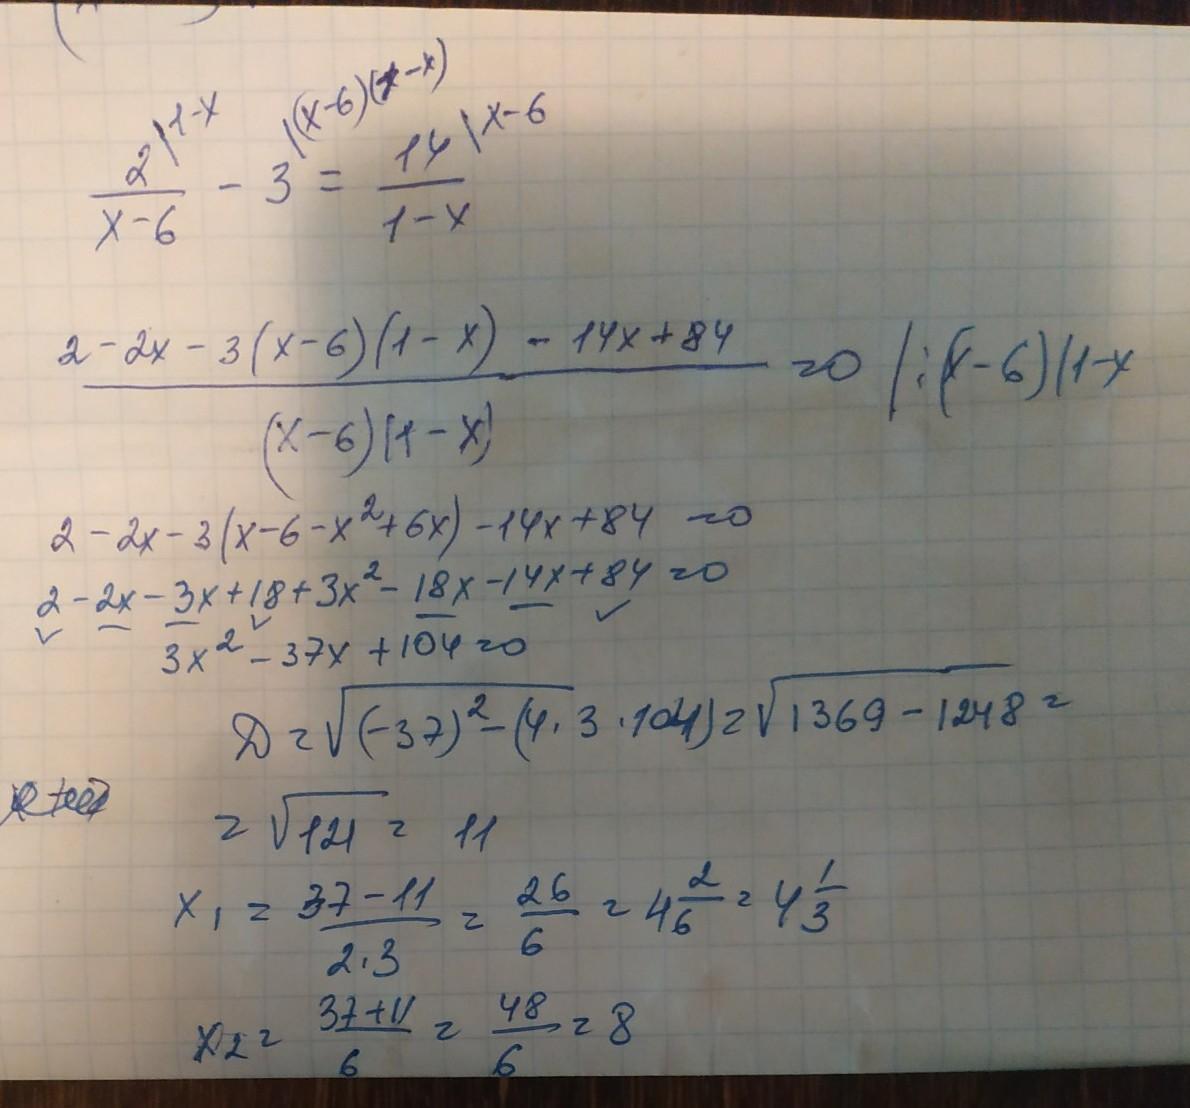 2|1-x / x-6 - 3|(x-6)(1-x) = 14|x-6 / 1-x
2-2x-3(x-6)(1-x) - 14x+84 / (x-6)(1-x) = 0 |:(x-6)(1-x
2-2x-3(x-6-x²+6x)-14x+84 = 0
2-2x-3x+18+3x²-18x-14x+84 = 0
3x²-37x+104 = 0
D = √(-37)²-(4·3·104) = √1369-1248 =
= √121 = 11
x₁ = 37-11 / 2·3 = 26/6 = 4 2/6 = 4 1/3
x₂ = 37+11 / 6 = 48/6 = 8